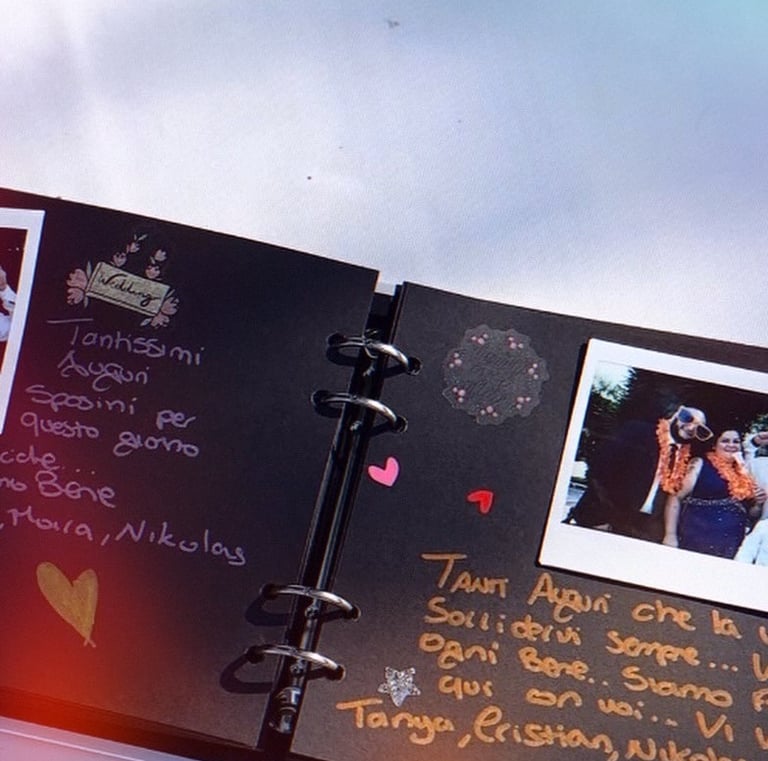 Wedding
Tantissimi
Auguri
Sposini per
questo giorno
Bene
, Mara, Nikolas
Tanti Auguri che la
Sorridervi sempre...
ogni Bene.. Siamo
qui con voi... Vi
Tanya, Cristian, Nikola